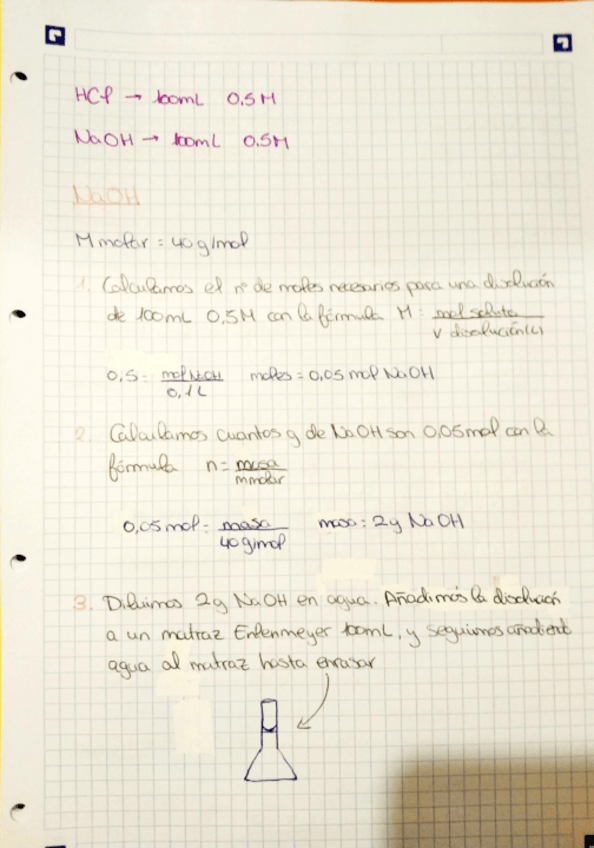 HCl → 100mL 0.5M
NaOH → 100mL 0.5M
NaOH
M molar = 40 g/mol
1. Calculamos el nº de moles necesarios para una disolución
de 100mL 0,5M con la fórmula M = mol soluto / V disolución (L)
0,5 = mol NaOH / 0,1 L moles = 0,05 mol NaOH
2. Calculamos cuantos g de NaOH son 0,05 mol con la
fórmula n = masa / mmolar
0,05 mol = masa / 40 g/mol masa = 2g NaOH
3. Diluimos 2g NaOH en agua. Añadimos la disolución
a un matraz Enlenmeyer 100mL, y seguimos añadiend
agua al matraz hasta enrasar